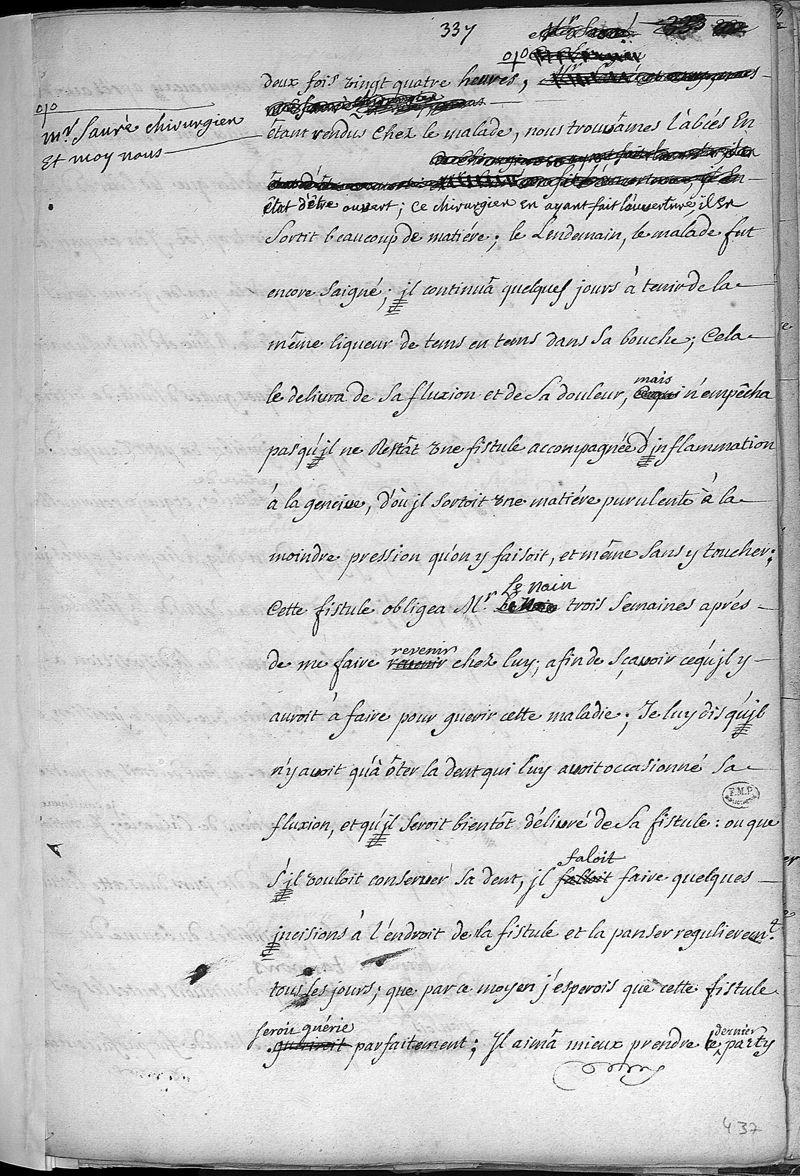 337
o|o
deux fois vingt quatre heures,
o|o
mr. Sauré chirurgien
Et moy nous
êtant rendus chez le malade, nous trouvâmes l'abcés En
état d'être ouvert; ce chirurgien En ayant fait l'ouverture, il En
Sortit beaucoup de matiére; le Lendemain, le malade fut
encore saigné; jl continuâ quelques jours à tenir de la
même liqueur de tems en tems dans sa bouche; Cela
le delivra de sa fluxion et de sa douleur, mais n'empêcha
pas qu'jl ne Restât une fistule accompagnée d'jnflammation
à la gencive, d'où jl sortoit une matiére purulente à la
moindre pression qu'on y faisoit, et même sans y toucher;
Cette fistule obligea Mr. Le Nain trois semaines aprés
de me faire revenir chez luy; afin de sçavoir ce qu'jl y
auroit à faire pour guerir cette maladie; Je luy dis qu'jl
n'y avoit qu'à ôter la dent qui luy avoit occasionné sa
fluxion, et qu'jl seroit bientôt délivré de sa fistule: ou que
s'jl vouloit conserver sa dent, jl faloit faire quelques
jncisions à l'endroit de la fistule et la panser regulierem.t
tous les jours; que par ce moyen j'esperois que cette fistule
seroit guérie parfaitement; Il aimâ mieux prendre le dernier party
F.M.P.
437